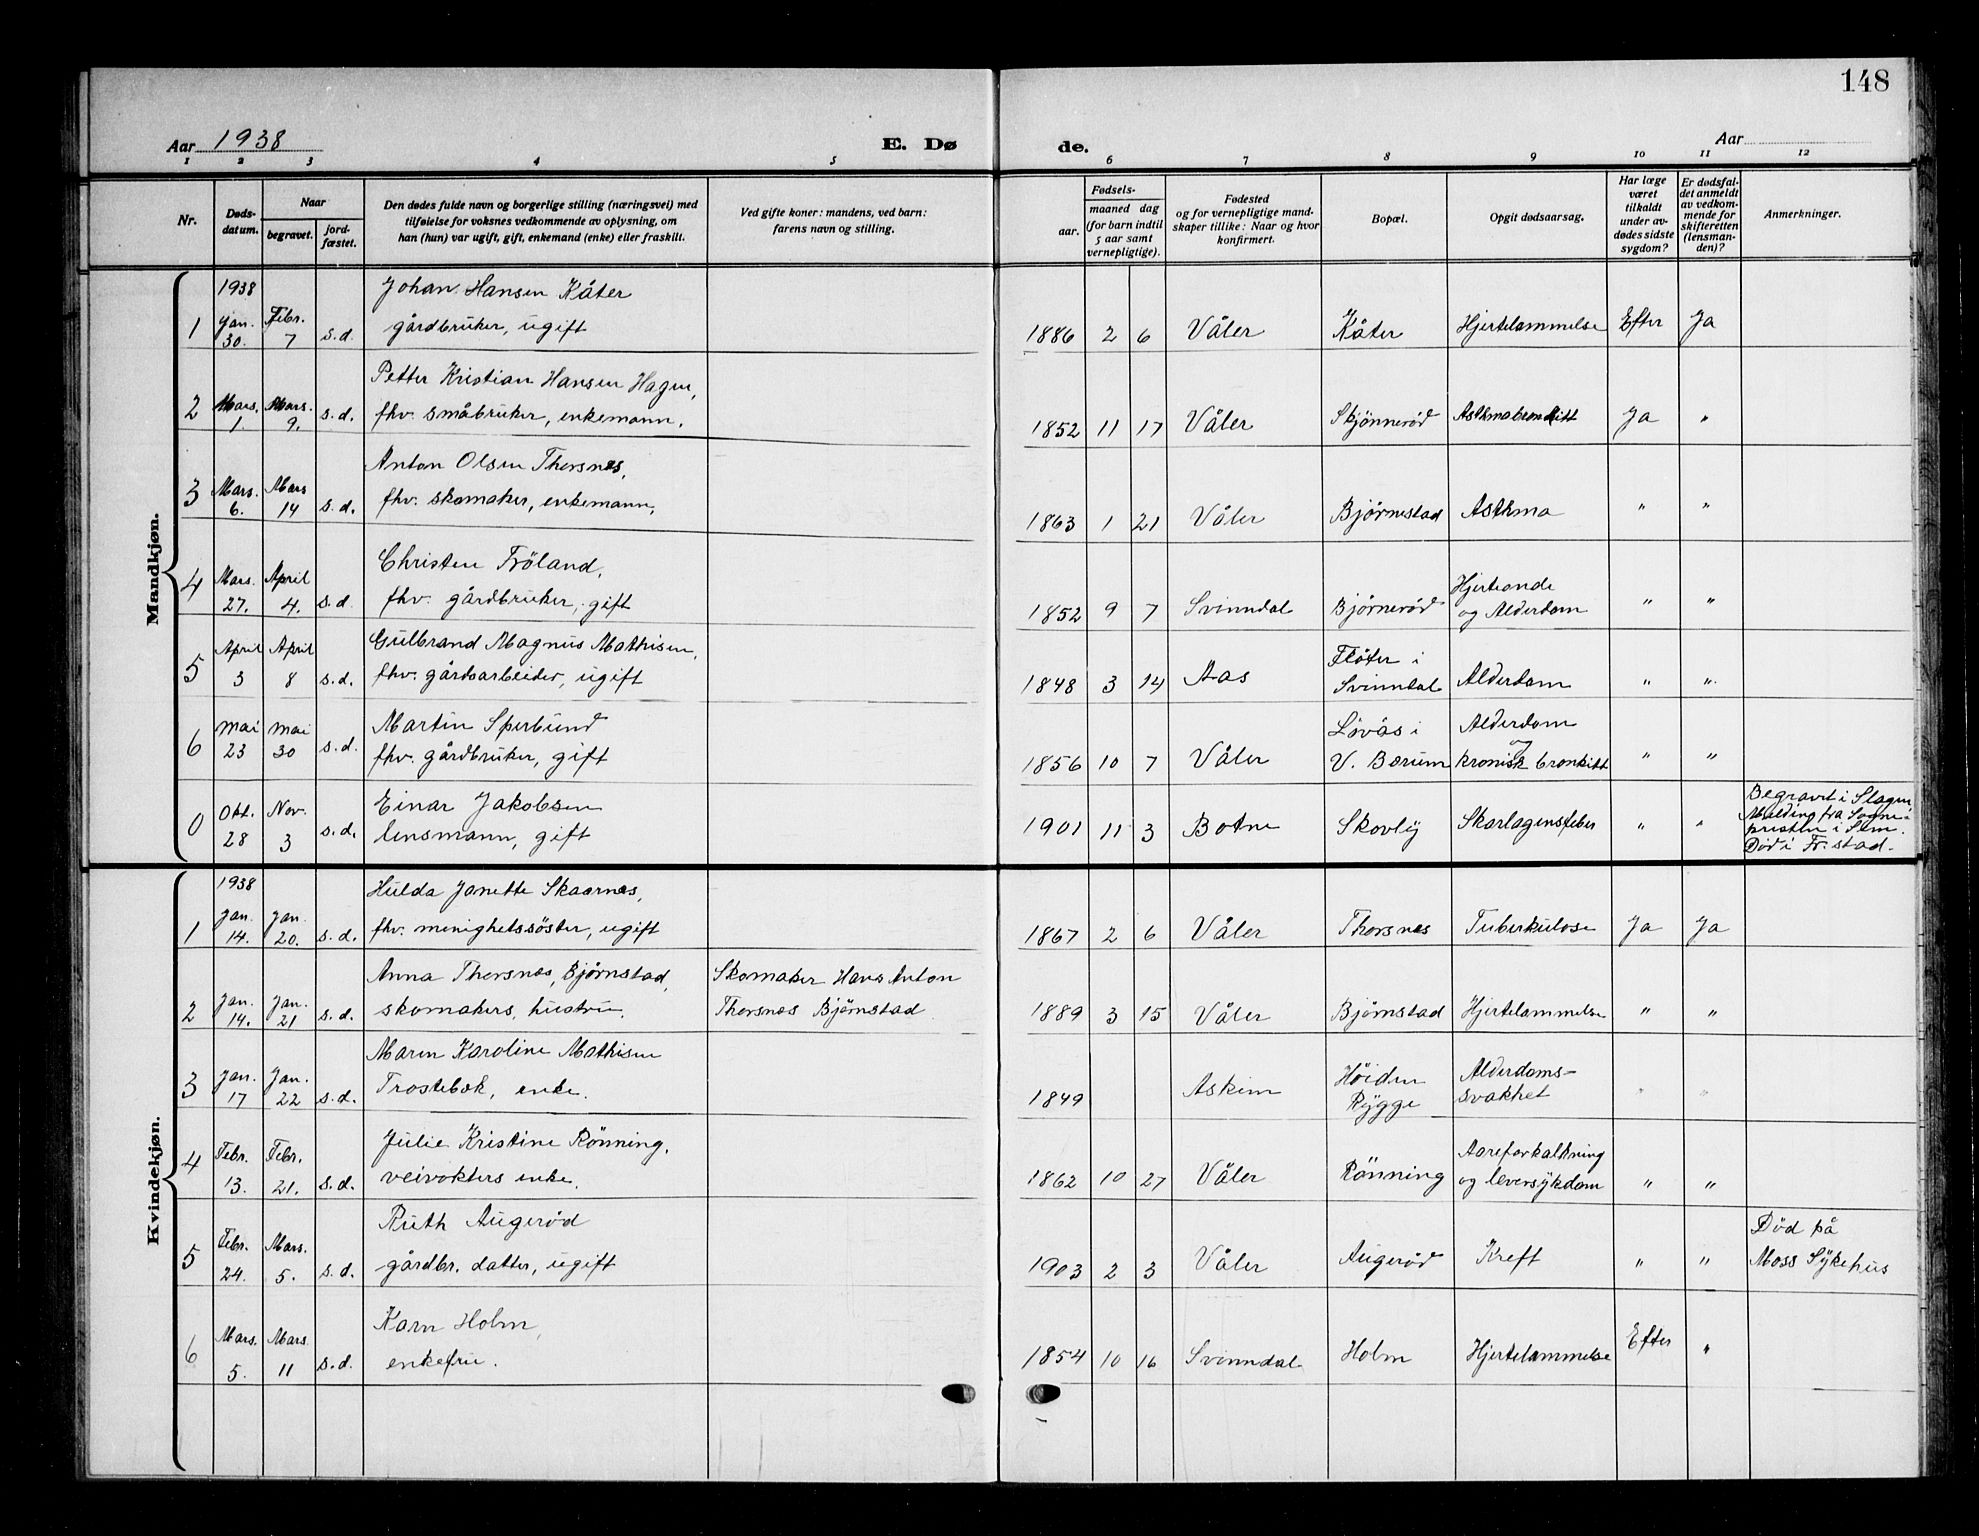 148
Aar 1938
E. Dø
de.
Aar
1 2 3 4 5 6 7 8 9 10 11 12
Nr.
Døds-
datum.
Naar
begravet.
jord-
fæstet.
Den dødes fulde navn og borgerlige stilling (næringsvei) med
tilføielse for voksnes vedkommende av oplysning, om
han (hun) var ugift, gift, enkemand (enke) eller fraskilt.
Ved gifte koner: mandens, ved barn:
farens navn og stilling.
Fødsels-
aar.
maaned dag
(for barn indtil
5 aar samt
vernepligtige).
Fødested
og for vernepligtige mand-
skaper tillike: Naar og hvor
konfirmert.
Bopæl.
Opgit dødsaarsag.
Har læge
været
tilkaldt
under av-
dødes sidste
sygdom?
Er dødsfal-
det anmeldt
av vedkom-
mende for
skifteretten
(lensman-
den)?
Anmerkninger.
Mandkjøn.
1938
Johan Hansen Kåter
1 Jan. 30. Febr. 7 s.d. gårdbruker, ugift 1886 2 6 Våler Kåter Hjertelammelse Efter Ja
Petter Kristian Hansen Hagen,
2 Mars. 1. Mars. 9. s.d. fhv. småbruker, enkemann. 1852 11 17 Våler Skjønnerød Asthmabronkitt Ja "
Anton Olsen Thorsnes,
3 Mars. 6. Mars 14 s.d. fhv. skomaker, enkemann, 1863 1 21 Våler Bjørnestad Asthma " "
Christen Fröland, Hjerteonde
4 Mars. 27. April 4. s.d. fhv. gårdbruker, gift 1852 9 7 Svinndal Bjørnerød og Alderdom " "
Gulbrand Magnus Mathisen, Fløter i
5 April 3 April 8 s.d. fhv. gårdsarbeider, ugift 1848 3 14 Aas Svinndal Alderdom " "
Martin Sperbund Lövås i Alderdom og
6 Mai 23 Mai 30 s.d. fhv. gårdbruker, gift 1856 10 7 Våler V. Bærum kronisk bronkitt " "
Einar Jakobsen
0 Okt. 28 Nov. 3 s.d. lensmann, gift 1901 11 3 Botne Skovly Skarlagensfeber " "
Begravet i Slagen
Melding fra Sogne-
presten i Sem.
Död i Fr.stad.
Kvindekjøn.
1938
Hulda Janette Skaarnes,
1 Jan. 14. Jan. 20. s.d. fhv. menighetssöster, ugift 1867 2 6 Våler Thorsnes Tuberkulose Ja Ja
Anna Thorsnes, Bjørnstad, Skomaker Hans Anton
2 Jan. 14. Jan. 21 s.d. skomakers, hustru. Thorsnes Bjørnstad 1889 3 15 Våler Bjørnstad Hjertelammelse " "
Maren Karoline Mathisen Höiden Alderdoms-
3 Jan. 17 Jan. 22 s.d. Trostebæk, enke. 1849 Askim Rygge svakhet " "
Julie Kristine Rönning, Aareforkalkning
4 Febr. 13. Febr. 21. s.d. veivokters enke. 1862 10 27 Våler Rönning og leversykdom " "
Ruth Augeröd Död på
5 Febr. 24. Mars. 5. s.d. gårdbr. datter, ugift 1903 2 3 Våler Augeröd Kreft " " Moss Sykehus
Karn Holm,
6 Mars. 5. Mars 11 s.d. enkefru. 1854 10 16 Svinndal Holm Hjertelammelse Efter "